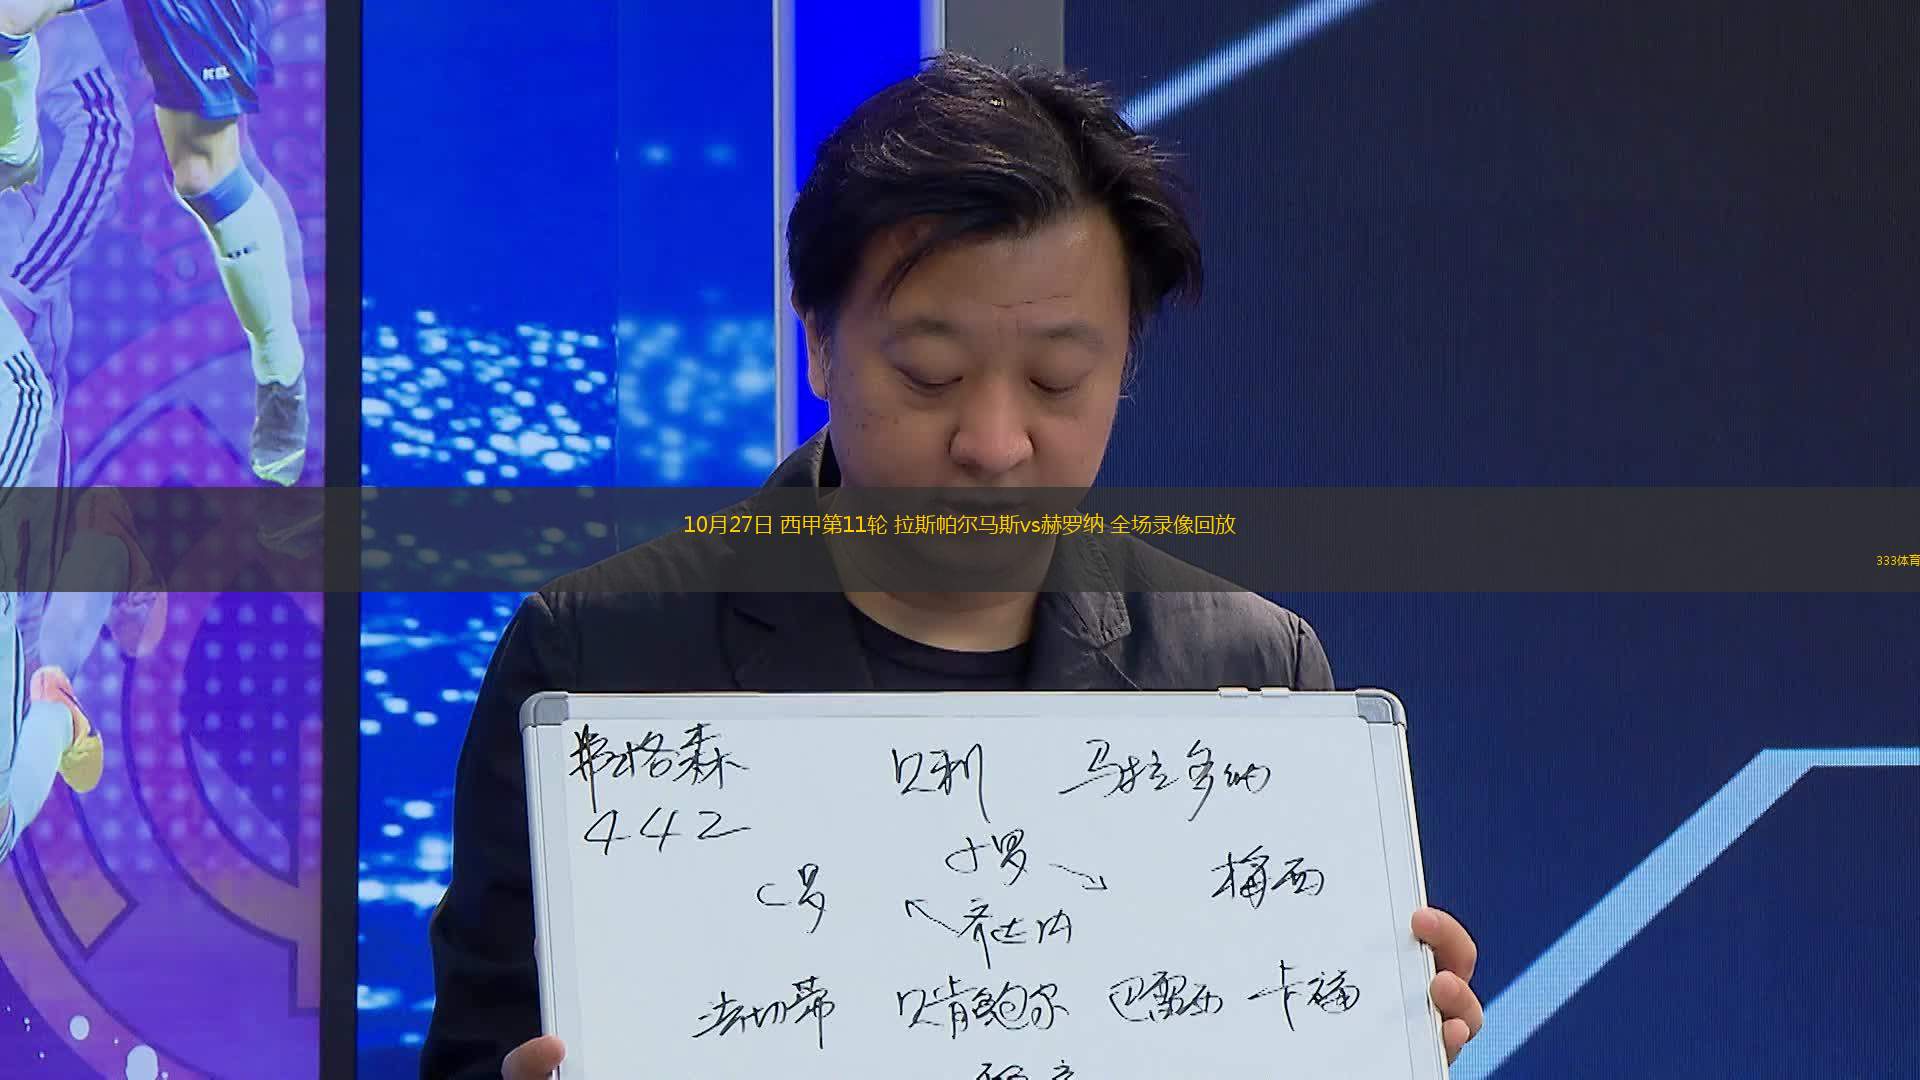 10月27日 西甲第11轮 拉斯帕尔马斯vs赫罗纳 全场录像回放
333体育
弗格森 贝利 马拉多纳
442
小罗
C罗 梅西
齐达内
法切蒂 贝肯鲍尔 巴雷西 卡福